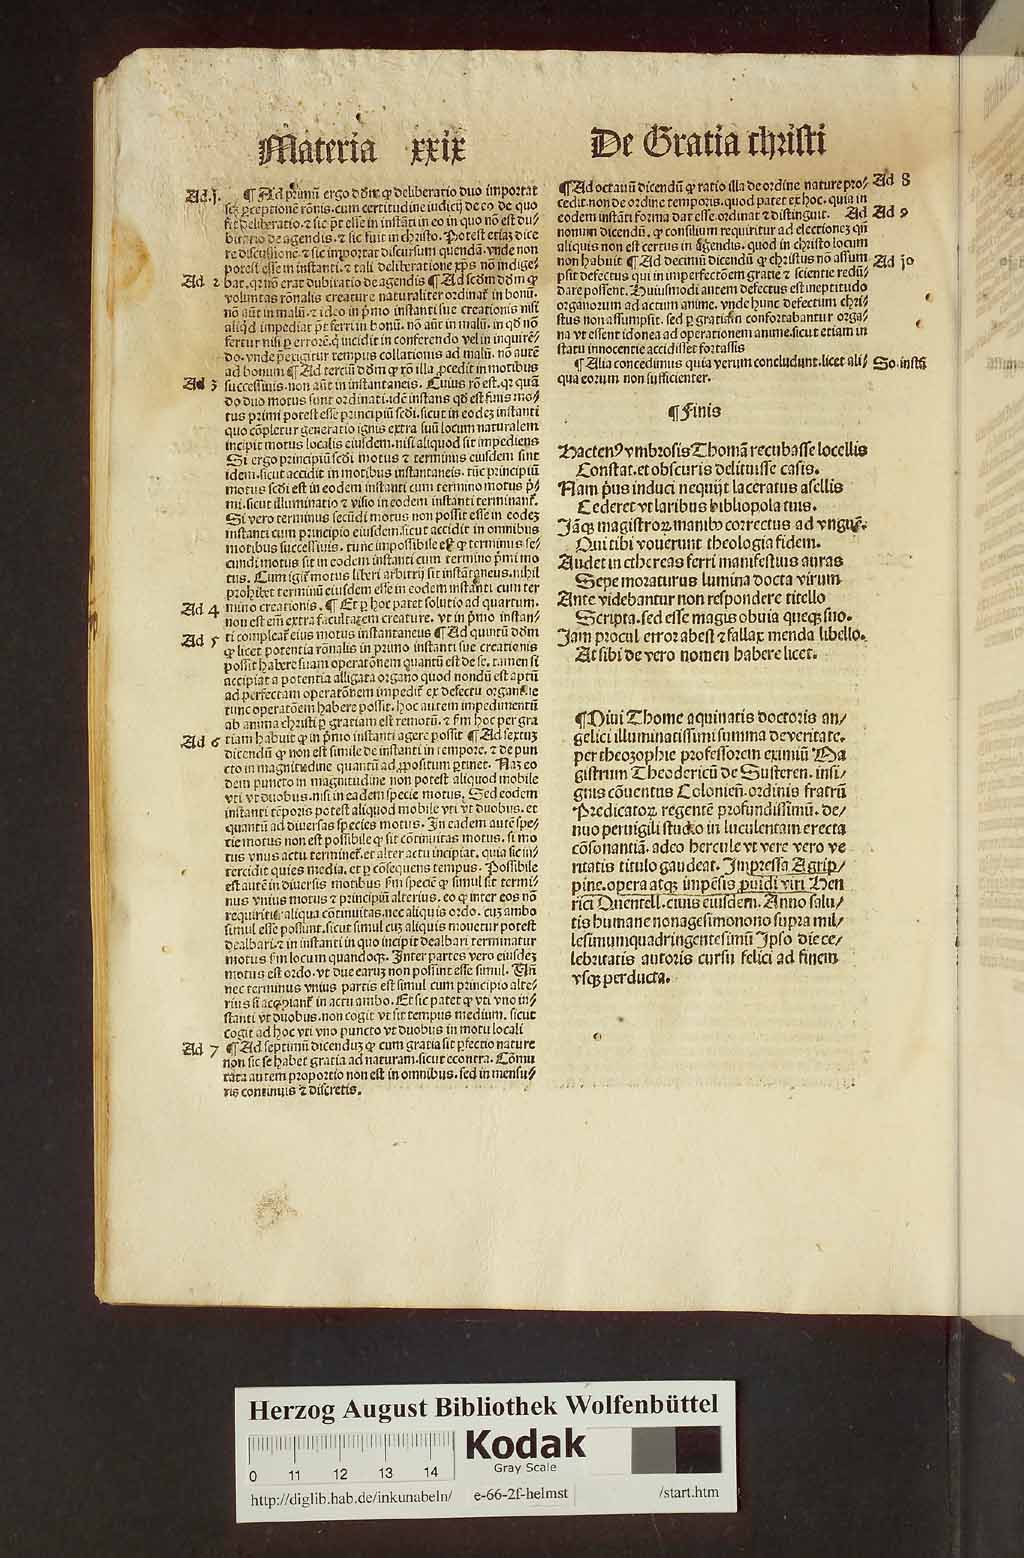 Materia xxix
De Gratia christi
Ad .j.
¶ Ad primū ergo dōm ꝙ deliberatio duo importat
scꝫ ꝑceptionē rōnis. cum certitudine iudicij de eo de quo
fit deliberatio. ⁊ sic pōt esse in instāti in eo in quo nō est du⸗
bitatio de agendis. ⁊ sic fuit in christo. Potest etiaꝫ dice
re discussionē ⁊ sic importat discursum quendā. vnde non
potest esse in instanti. ⁊ tali deliberatione xp̄s nō indige⸗
Ad 2
bat. qꝛ nō erat dubitatio de agendis ¶ Ad scd̄m dōm ꝙ
voluntas rōnalis creature naturaliter ordinat̄ in bonū.
nō aūt in malū. ⁊ ideo in pͥmo instanti sue creationis nisi
aliqͥd impediat pōt ferri in bonū. nō aūt in malū. in qd̄ nō
fertur nisi ꝑ errorē. qͥ incidit in conferendo vel in inquirē⸗
do. vnde p̄exigitur tempus collationis ad malū. nō autē
ad bonum ¶ Ad terciū dōm ꝙ rō illa ꝓcedit in motibus
Ad 3
successiuis. non aūt in instantaneis. Cuius rō est. qꝛ quā
do duo motus sunt ordinati. idē instans qd̄ est finis mo⸗
tus primi potest esse principiū scd̄i. sicut in eodeꝫ instanti
quo cōpletur generatio ignis extra suū locum naturalem
incipit motus localis eiusdem. nisi aliquod sit impediens
Si ergo principiū scd̄i motus ⁊ terminus eiusdem sint
idem. sicut accidit in motibus instantaneis. tūc principiū
motus scd̄i est in eodem instanti cum termino motus pͥ⸗
mi. sicut illuminatio ⁊ visio in eodem instanti terminant̄.
Si vero terminus secūdi motus non possit esse in eodeꝫ
instanti cum principio eiusdem. sicut accidit in omnibus
motibus successiuis. tunc impossibile est ꝙ terminus se⸗
cundi motus sit in eodem instanti cum termino pͥmi mo
tus. Cum igit̄ motus liberi arbitrij sit instātaneus. nihil
prohibet terminū eiusdem esse in eodem instanti cum ter
Ad 4
mino creationis. ¶ Et ꝑ hoc patet solutio ad quartum.
non est em̄ extra facultatem creature. vt in pͥmo instan⸗
Ad 5
ti compleat̄ eius motus instantaneus ¶ Ad quintū dōm
ꝙ licet potentia rōnalis in primo instanti sue creationis
possit habere suam operatōnem quantū est de se. tamen si
accipiat̄ a potentia alligata organo quod nondū est aptū
ad perfectam operatōnem impedit̄ ex defectu organi ne
tunc operatōem habere possit. hoc autem impedimentū
ab anima christi ꝑ gratiam est remotū. ⁊ fm hoc per gra
Ad 6
tiam habuit ꝙ in pͥmo instanti agere possit ¶ Ad sextuꝫ
dicendū ꝙ non est simile de instanti in tempore. ⁊ de pun
cto in magnitudine quantū ad ꝓpositum ꝑtinet. Naꝫ eo
dem puncto in magnitudine non potest aliquod mobile
vti vt duobus. nisi in eadem specie motus. Sed eodem
instanti tēporis potest aliquod mobile vti vt duobus. et
quantū ad diuersas species motus. In eadem autē spe⸗
cie motus non est possibile ꝙ sit continuitas motus. si mo
tus vnus actu terminet̄. et alter actu incipiat. quia sic in⸗
tercidit quies media. et ꝑ cōsequens tempus. Possibile
est autē in diuersis motibus fm speciē ꝙ simul sit termi⸗
nus vnius motus ⁊ principiū alterius. eo ꝙ inter eos nō
requiritur aliqua cōtinuitas. nec aliquis ordo. cuꝫ ambo
simul esse possunt. sicut simul cuꝫ aliquis mouetur potest
dealbari. ⁊ in instanti in quo incipit dealbari terminatur
motus fm locum quandoqꝫ. Inter partes vero eiusdeꝫ
motus est ordo. vt due earuꝫ non possint esse simul. Vn̄
nec terminus vnius partis est simul cum principio alte⸗
rius si accipiant̄ in actu ambo. Et sic patet ꝙ vti vno in⸗
stanti vt duobus. non cogit vt sit tempus medium. sicut
cogit ad hoc vti vno puncto vt duobus in motu locali
Ad 7
¶ Ad septimū dicenduꝫ ꝙ cum gratia sit ꝑfectio nature
non sic se habet gratia ad naturam. sicut econtra. Cōmu
tata autem proportio non est in omnibus. sed in mensu⸗
ris continuis ⁊ discretis.
¶ Ad octauū dicendū ꝙ ratio illa de ordine nature pro⸗
Ad 8
cedit. non de ordine temporis. quod patet ex hoc. quia in
eodem instāti forma dat esse. ordinat ⁊ distinguit. Ad
Ad 9
nonum dicendū. ꝙ consilium requiritur ad electioneꝫ qn̄
aliquis non est certus in agendis. quod in christo locum
non habuit ¶ Ad decimū dicendū ꝙ christus nō assum
Ad jo
psit defectus qui in imperfectōem gratie ⁊ scientie redū⸗
dare possent. Huiusmodi autem defectus est ineptitudo
organorum ad actum anime. vnde hunc defectum chri⸗
stus non assumpsit. sed ꝑ gratiam confortabantur orga⸗
na vt essent idonea ad operationem anime. sicut etiam in
statu innocentie accidisset fortassis
¶ Alia concedimus quia verum concludunt. licet ali⸗
So. instā
qua eorum non sufficienter.
¶ Finis
Hactenꝰ vmbrosis Thomā recubasse locellis
Constat. et obscuris delituisse casis.
Nam pͥus induci nequijt laceratus asellis
Cederet vt laribus bibliopola tuis.
Iāqꝫ magistroꝝ manibꝰ correctus ad vnguē.
Qui tibi vouerunt theologia fidem.
Audet in ethereas ferri manifestius auras
Sepe moraturus lumina docta virum
Ante videbantur non respondere titello
Scripta. sed esse magis obuia queqꝫ suo.
Iam procul error abest ⁊ fallax menda libello.
At sibi de vero nomen habere licet.
¶ Diui Thome aquinatis doctoris an⸗
gelici illuminatissimi summa de veritate.
per theozophie professorem eximiū Ma
gistrum Theodericū de Susteren. insi⸗
gnis cōuentus Colonien̄. ordinis fratrū
Predicatoꝝ regentē profundissimū. de⸗
nuo peruigili studio in luculentam erecta
cōsonantiā. adeo hercule vt vere vero ve
ritatis titulo gaudeat. Impressa Agrip⸗
pine. opera atqꝫ impēsis ꝓuidi viri Hen
rici Quentell. ciuis eiusdem. Anno salu⸗
tis humane nonagesimonono supra mil⸗
lesimumquadringentesimū Ipso die ce⸗
lebritatis autoris cursu felici ad finem
vsqꝫ perducta.
Herzog August Bibliothek Wolfenbüttel
Kodak
Gray Scale
0 11 12 13 14
http://diglib.hab.de/inkunabeln/ e-66-2f-helmst /start.htm